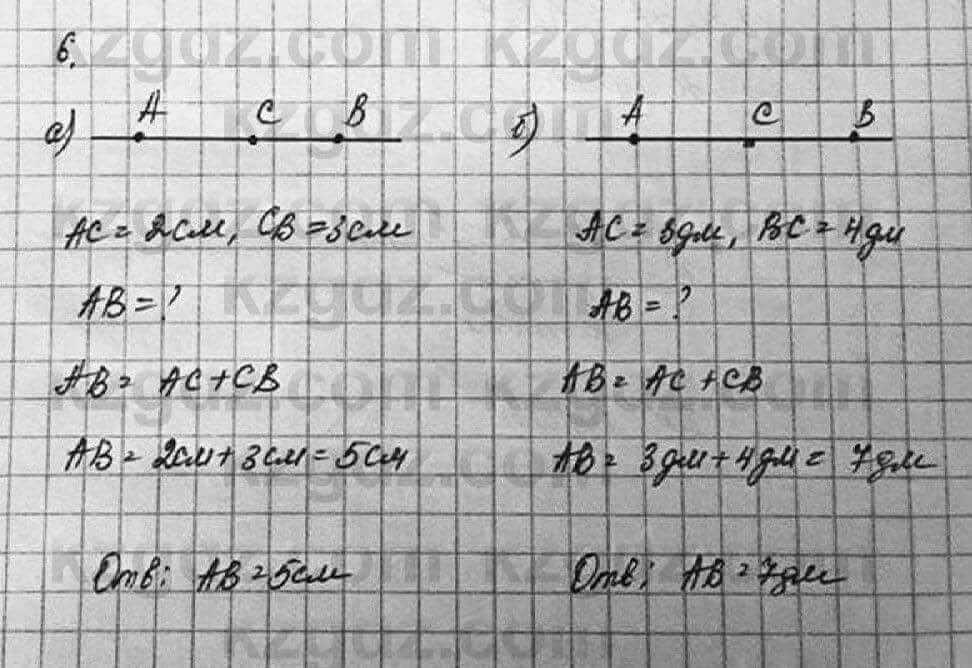 6.
а) A C B
AC = 2см, CB = 3см
AB = ?
AB = AC + CB
AB = 2см + 3см = 5см
Отв: AB = 5см
б) A C B
AC = 3дм, BC = 4дм
AB = ?
AB = AC + CB
AB = 3дм + 4дм = 7дм
Отв: AB = 7дм
kzgdz.com kzgdz.com
kzgdz.com
kzgdz.com kzgdz.com
kzgdz.com
kzgdz.com kzgdz.com
kzgdz.com
kzgdz.com kzgdz.com
kzgdz.com